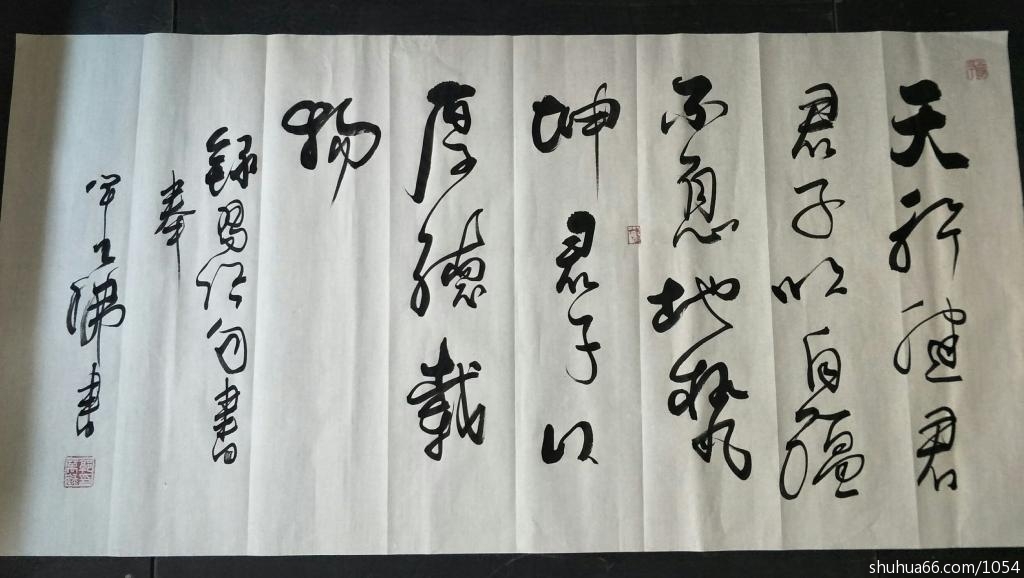 天行健君
君子以自彊
不息地勢
坤君子以
厚德載
物
録易经句書
奉
書
shuhua66.com/1054